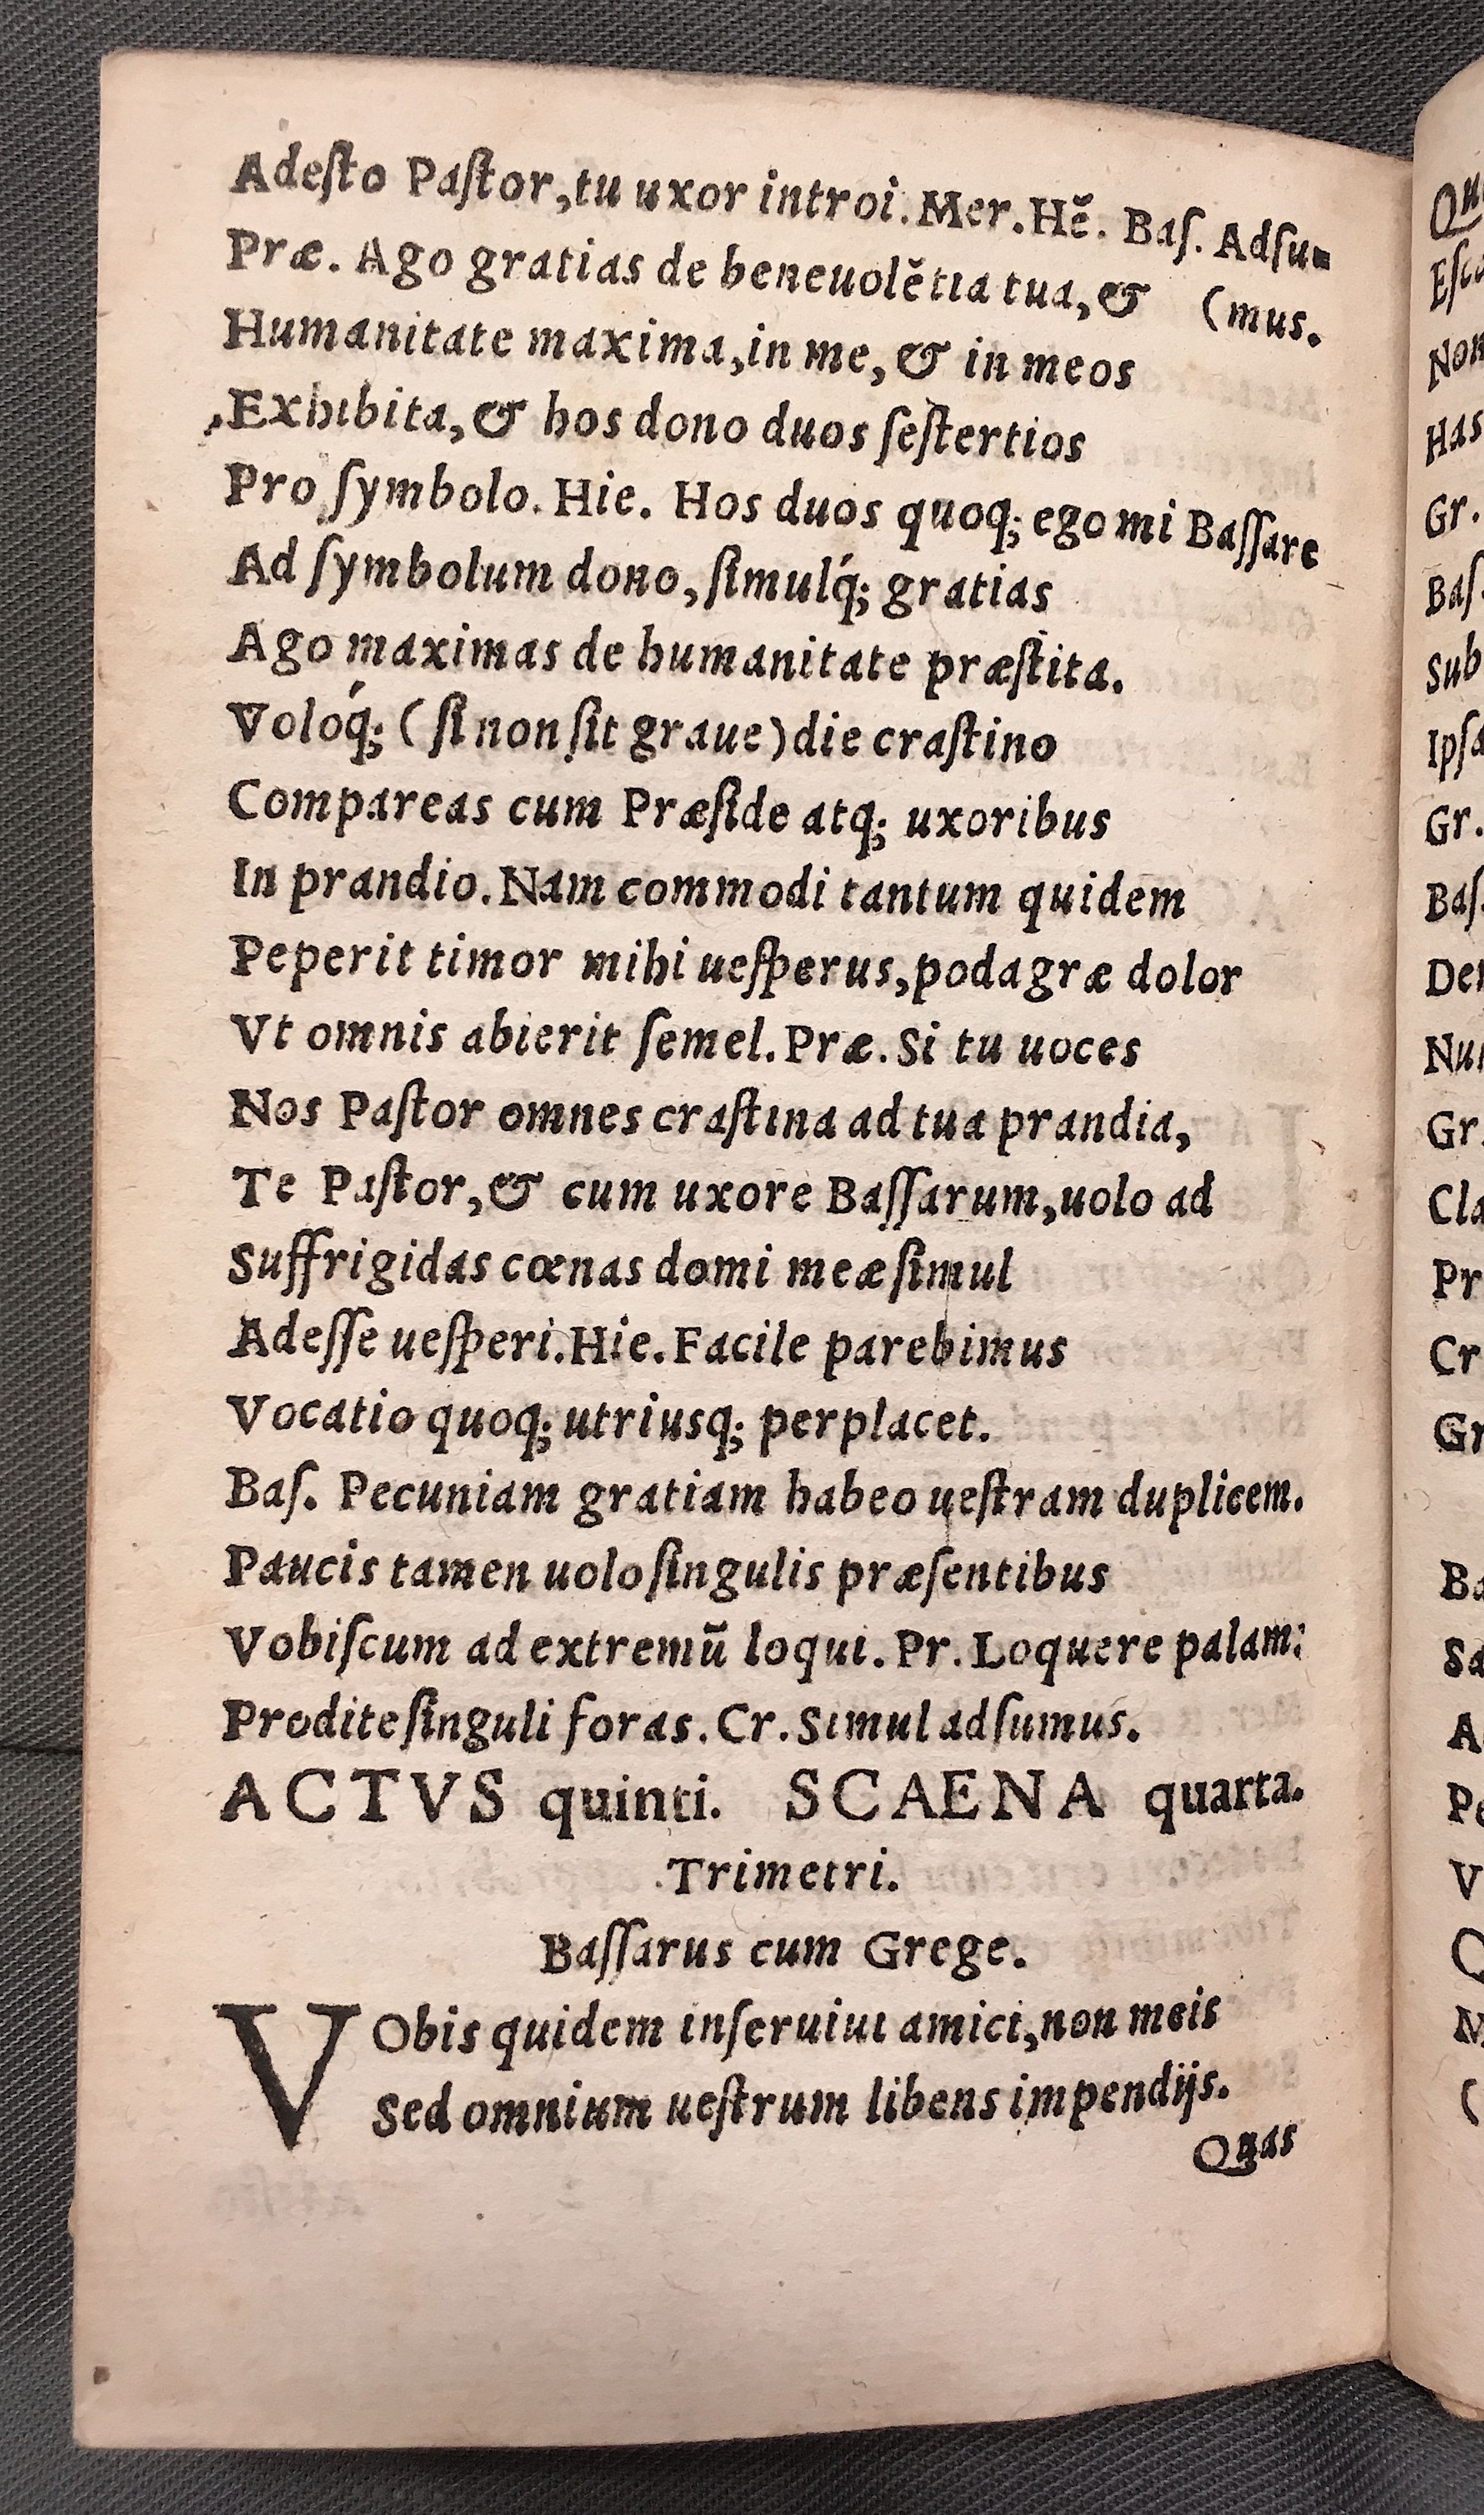 Adeſto Paſtor, tu uxor introi. Mer. Hẽ. Baſ. Adſu-
Præ. Ago gratias de beneuolẽtia tua, & (mus.
Humanitate maxima, in me, & in meos
Exhibita, & hos dono duos ſeſtertios
Pro ſymbolo. Hie. Hos duos quoq; ego mi Baſſare
Ad ſymbolum dono, ſimulq́; gratias
Ago maximas de humanitate præſtita.
Voloq́; (ſi non ſit graue) die craſtino
Compareas cum Præſide atq; uxoribus
In prandio. Nam commodi tantum quidem
Peperit timor mihi ueſperus, podagræ dolor
Vt omnis abierit ſemel. Præ. Si tu uoces
Nos Paſtor omnes craſtina ad tua prandia,
Te Paſtor, & cum uxore Baſſarum, uolo ad
Suffrigidas cœnas domi meæ ſimul
Adeſſe ueſperi. Hie. Facile parebimus
Vocatio quoq; utriusq; perplacet.
Baſ. Pecuniam gratiam habeo ueſtram duplicem.
Paucis tamen uolo ſingulis præſentibus
Vobiſcum ad extremũ loqui. Pr. Loquere palam:
Prodite ſinguli foras. Cr. Simul adſumus.
ACTVS quinti. SCAENA quarta.
Trimetri.
Baſſarus cum Grege.
VObis quidem inſeruiui amici, non meis
Sed omnium ueſtrum libens impendijs.
Quas
Eſca
Non
Has
Gr.
Baſ.
Sub
Ipſa
Gr.
Baſ.
Gr.
Cla
Pr
Cr
Gr
Ba